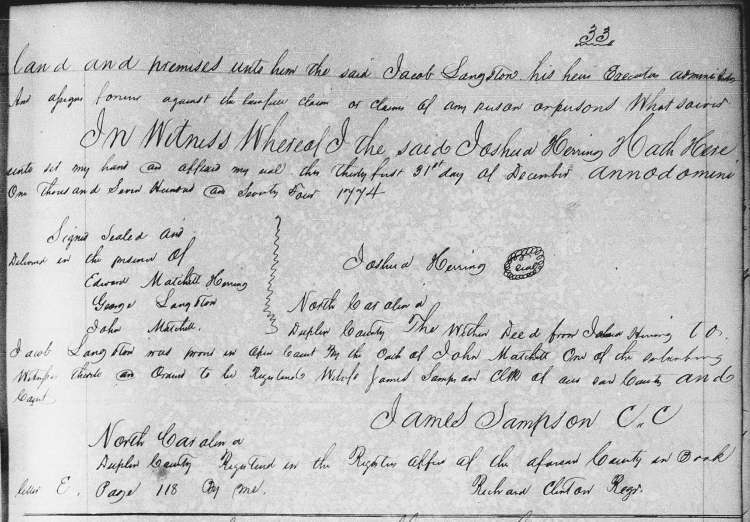 33
land and premises unto him the said Jacob Langston his heirs Executors
And assigns forever against the lawfull claim or claims of any person or persons Whatsoever
In Witness Whereof I the said Joshua Herring Hath Here
unto set my hand and affixed my seal this thirty first 31st day of December annodomini
One Thousand Seven Hundred and Seventy Four 1774
Signed Sealed and
Delivered in the presence Of
Edward Matchett Herring
George Langston
John Matchett.
Joshua Herring
Seal
North Carolina
Duplin County The Within Deed from Joshua Herring to
Jacob Langston was proved in Open Court By the Oath of John Matchett One of the
Witnesses thereto and Ordered to be Registered Witness James Sampson Clk of our said County and
Court
James Sampson C.C
North Carolina
Duplin County Registered in the Registers office of the aforesaid County in Book
letter E. Page 118 By me.
Richard Clinton Regr.